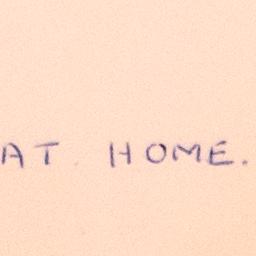 AT HOME.